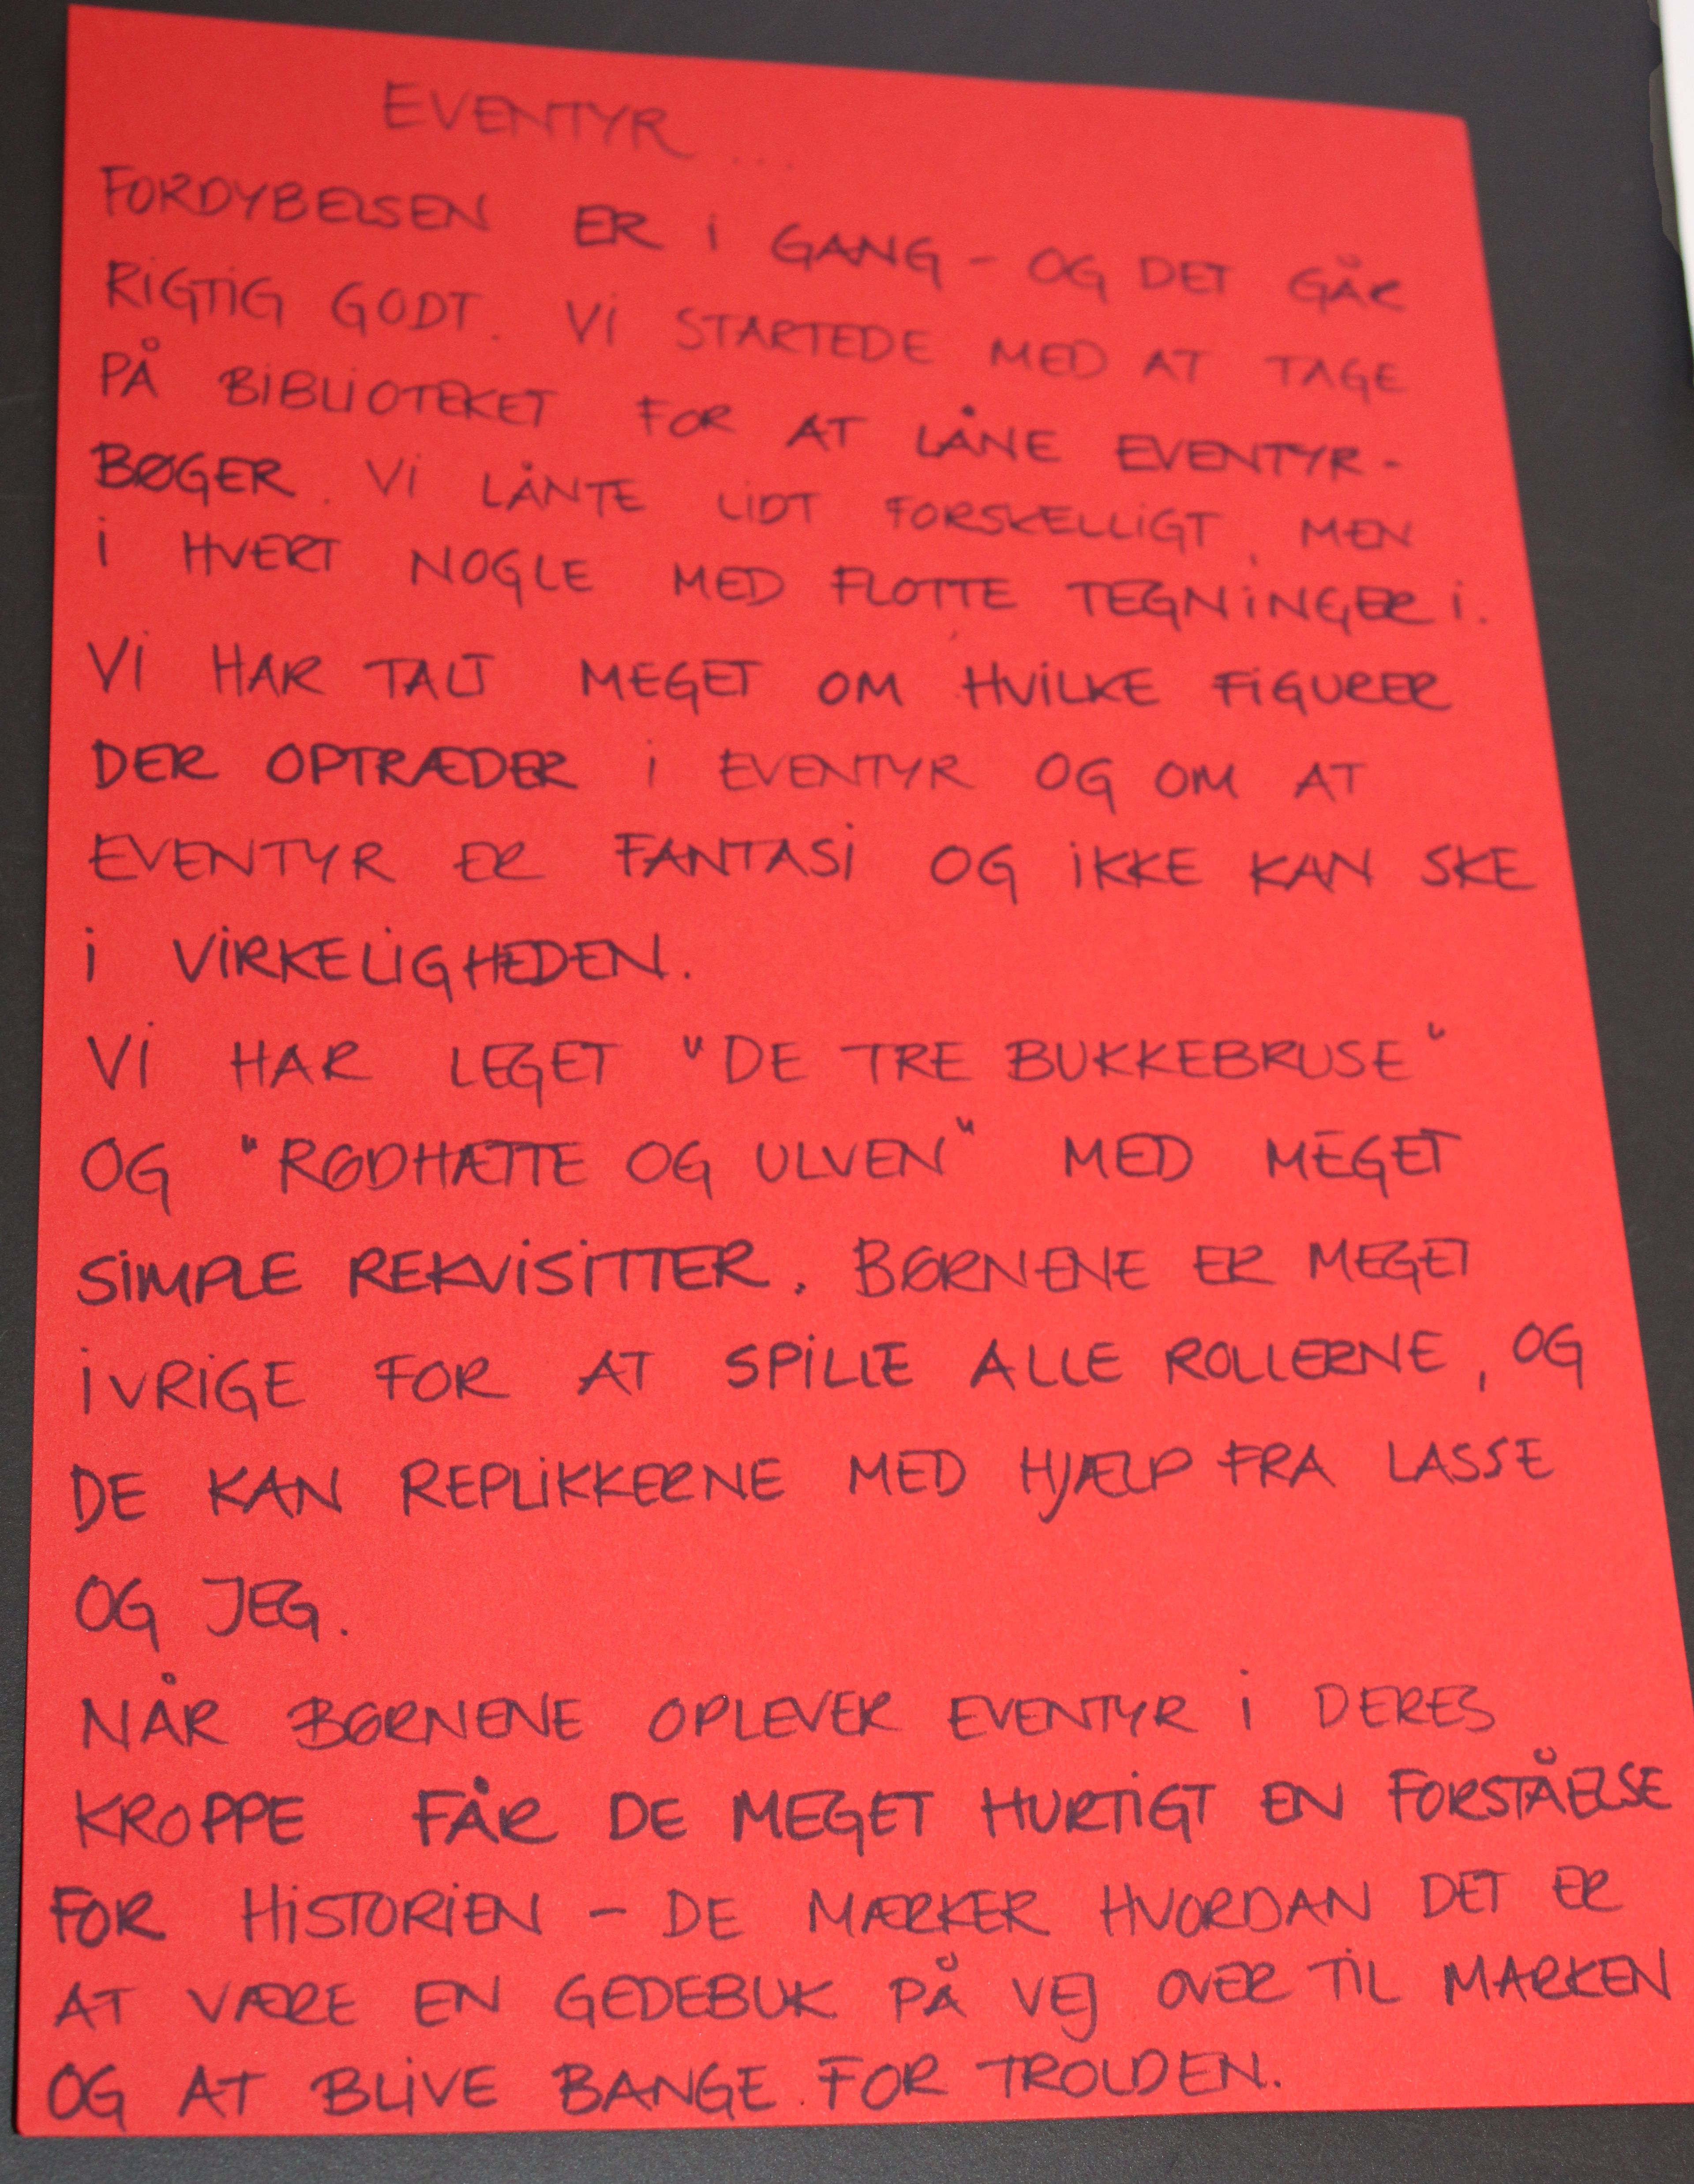 EVENTYR ...
FORDYBELSEN ER i GANG - OG DET GÅR
RiGTiG GODT. Vi STARTEDE MED AT TAGE
PÅ BiBLiOTEKET FOR AT LÅNE EVENTYR-
BØGER. Vi LÅNTE LiDT FORSKELLiGT, MEN
i HVERT NOGLE MED FLOTTE TEGNiNGER i.
Vi HAR TALT MEGET OM HViLKE FiGURER
DER OPTRÆDER i EVENTYR OG OM AT
EVENTYR ER FANTASi OG iKKE KAN SKE
i ViRKELiGHEDEN.
Vi HAR LEGET "DE TRE BUKKEBRUSE"
OG "RØDHÆTTE OG ULVEN" MED MEGET
SiMPLE REKViSiTTER. BØRNENE ER MEGET
iVRiGE FOR AT SPiLLE ALLE ROLLERNE, OG
DE KAN REPLiKKERNE MED HJÆLP FRA LASSE
OG JEG.
NÅR BØRNENE OPLEVER EVENTYR i DERES
KROPPE FÅR DE MEGET HURTiGT EN FORSTÅELSE
FOR HiSTORiEN - DE MÆRKER HVORDAN DET ER
AT VÆRE EN GEDEBUK PÅ VEJ OVER TiL MARKEN
OG AT BLiVE BANGE FOR TROLDEN.